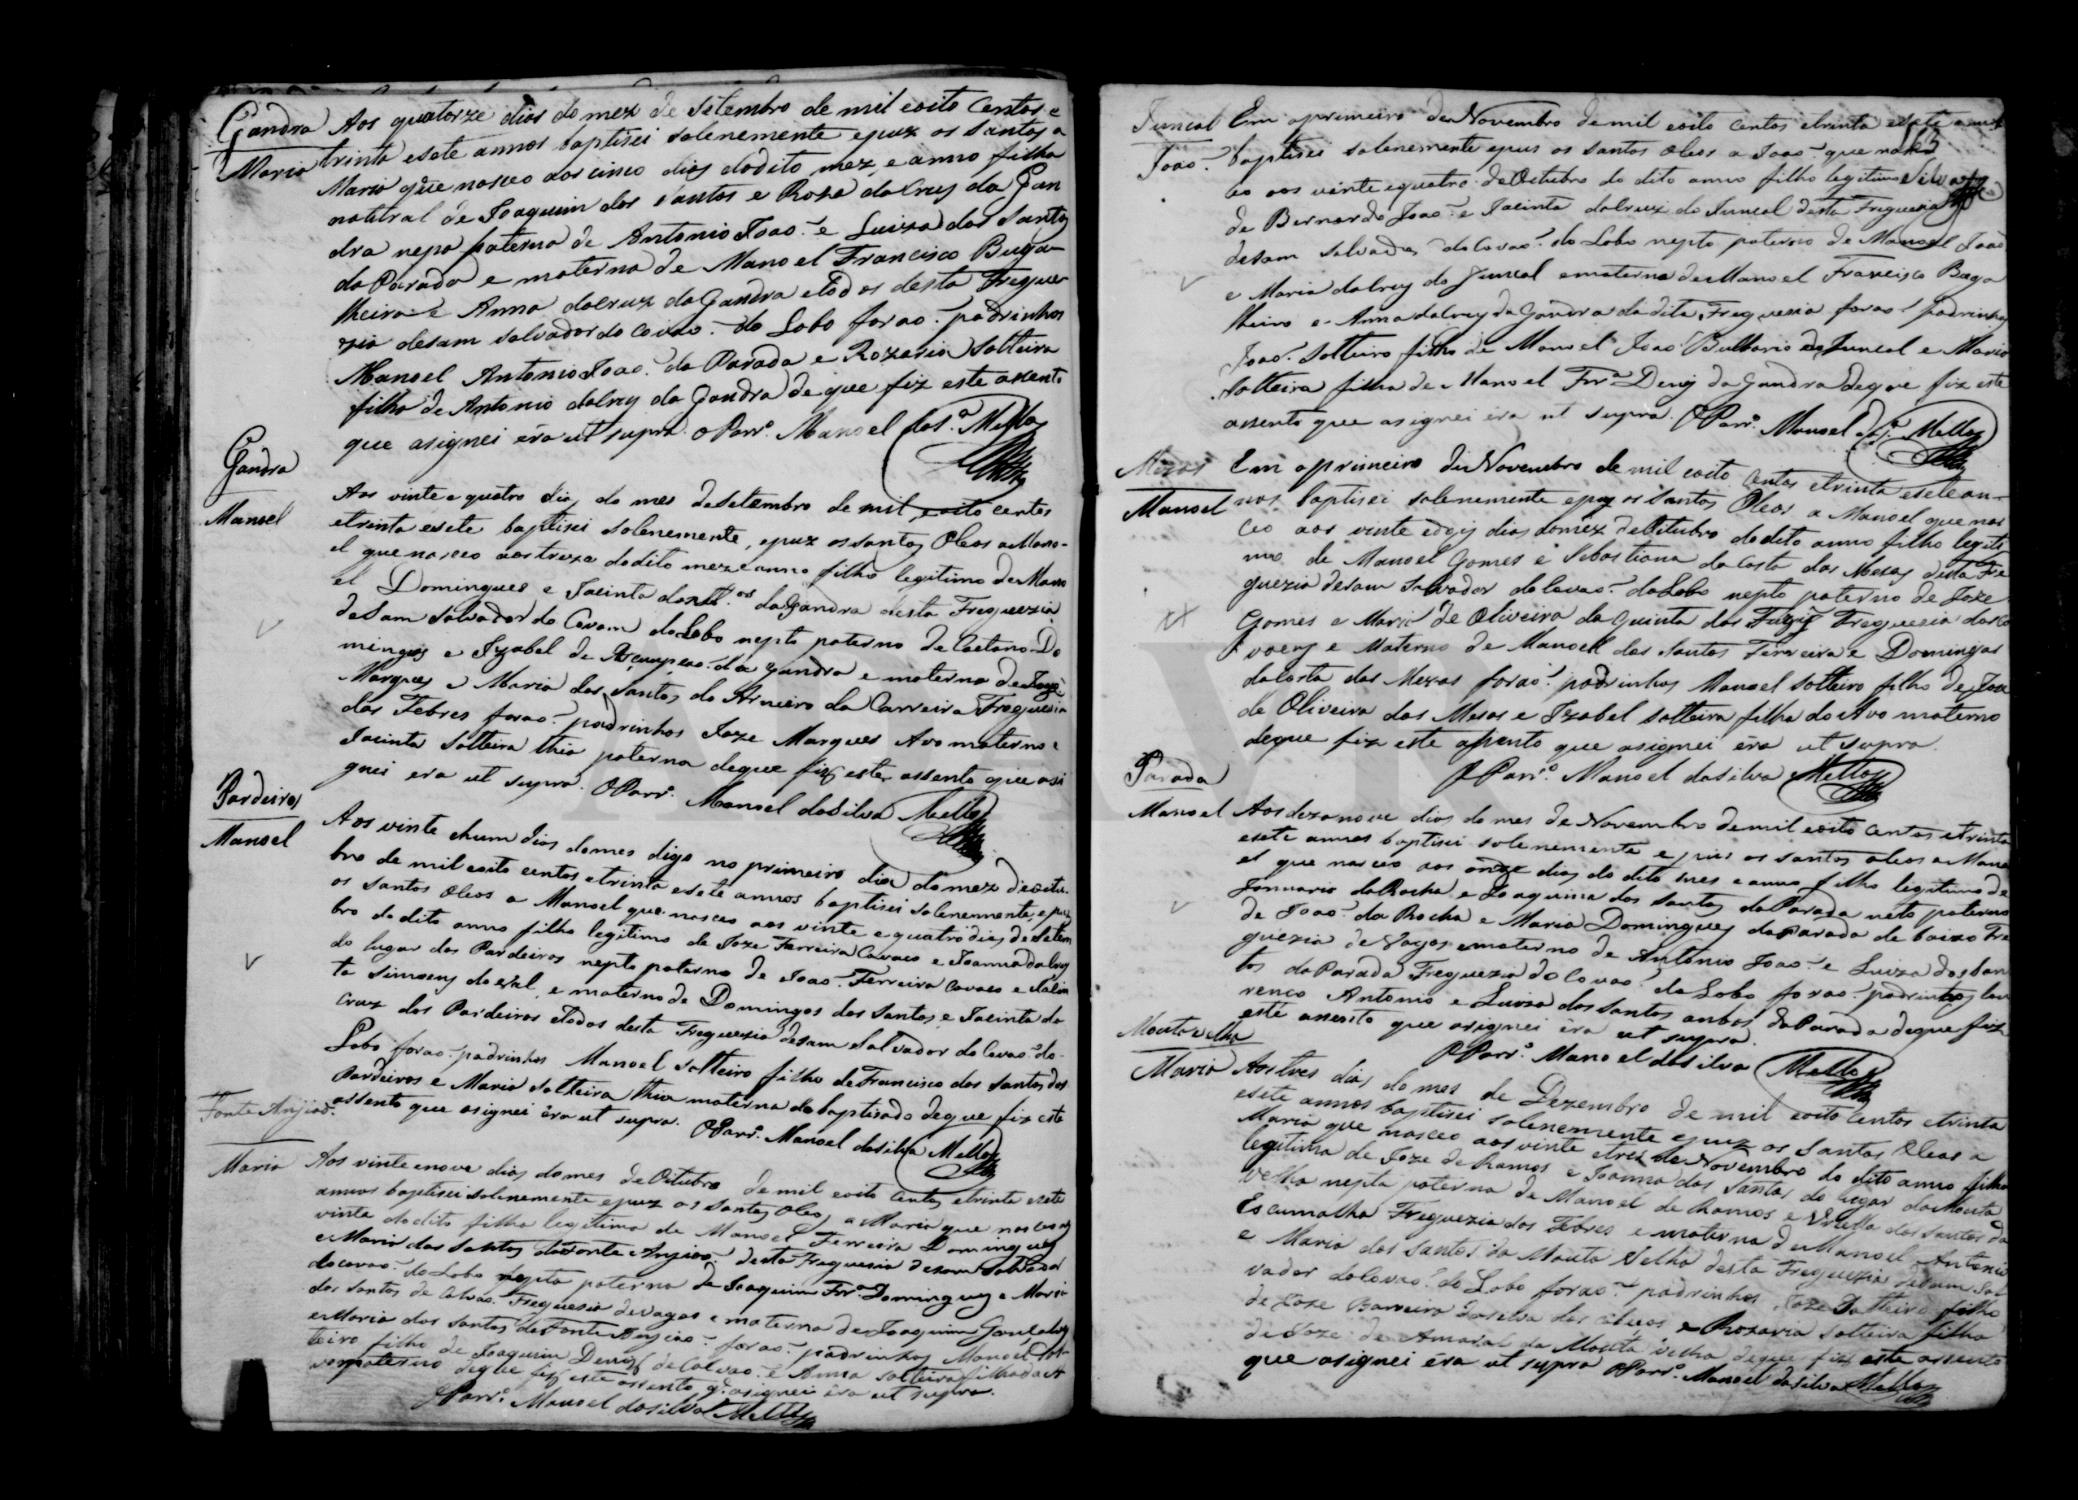 Gandra
Maria
Aos quatorze dias do mez de Setembro de mil eoito Centos e
trinta esete annos baptisei solenemente epuz os Santos a
Maria que nasceo aos cinco dias dodito mez, e anno filha
natural de Joaquim dos Santos e Roza dacruz da Gan
dra nepa paterna de Antonio Joaõ e Luiza dos Santos
da Parada e materna de Manoel Francisco Buga
lheiro e Anna dacruz da Gandra etodos desta Fregue
zia desam salvador do Covaõ do Lobo foraõ padrinhos
Manoel Antonio Joaõ da Parada e Rozaria Solteira
filha de Antonio dacruz da Gandra de que fiz este asento
que asignei éra ut supra. O Parr.º Manoel da S.ª Mello
Gandra
Manoel
Aos vinte e quatro dias do mes deSetembro de mil eoito centos
etrinta esete baptisei solenemente, epuz os santos Oleos aMano-
el que nasceo aos treze dodito mez eanno filho legitimo de Mano
el Domingues e Jacinta dos da Gandra desta Freguezia
deSam Salvador do Covam do Lobo nepto paterno de Caetano Do
mingues e Izabel de Ascençaõ da Gandra e materno de Joze
Marques e Maria dos Santos do Arneiro da Carreira Freguezia
das Febres foraõ padrinhos Joze Marques Avo materno e
Jacinta Solteira thia paterna deque fiz este assento que asi
gnei era ut supra. O Parr.º Manoel daSilva Mello
Pardeiros
Manoel
Aos vinte ehum dias domes digo no primeiro dia do mez deoitu-
bro de mil eoito centos etrinta esete annos baptisei solenemente, epuz
os santos Oleos a Manoel que nasceo aos vinte e quatro dias deSetem
bro do dito anno filho legitimo de Joze Ferreira Cavaco e Joanna dacruz
do lugar dos Pardeiros nepto paterno de Joaõ Ferreira Cavaco e Jacin
ta Simoens e materno de Domingos dos Santos e Jacinta da
Cruz dos Pardeiros etodos desta Freguezia desam Salvador do Covaõ do
Lobo foraõ padrinhos Manoel solteiro filho de Francisco dos Santos dos
Pardeiros e Maria solteira thia materna do baptisado deque fiz este
assento que asignei éra ut supra. O Parr.º Manoel dasilva Mello
Fonte Anjiaõ
Maria
Aos vinte enove dias domes de Oitubro de mil eoito Centos etrinta esete
annos baptisei solenemente epuz os santos Oleos a Maria que nasceo aos
vinte do dito filha legitima de Manoel Ferreira Domingues
e Maria dos Santos da Fonte Anjiaõ desta Freguezia desam salvador
docovaõ do Lobo nepta paterna de Joaquim Frr.ª Domingues e Maria
dos Santos de Calvaõ Freguezia deVagos e materna de Joaquim Gonsalves
eMaria dos Santos da Fonte Anjiaõ foraõ padrinhos Manoel Sol
teiro filho de Joaquim Deniz de Calvaõ e Anna solteira filha da A
vo paterno deque fiz este assento q. asignei éra ut supra.
O Parr.º Manoel da Silva Mello
Juncal
Joaõ
Em oprimeiro deNovembro de mil eoito centos etrinta esete annos
baptisei solenemente epus os santos oleos a Joaõ que nas
ceo aos vinte equatro deOitubro do dito anno filho legitimo
Silva
de Bernardo Joaõ e Jacinta dacruz do Juncal desta Freguezia
desam Salvador do Covaõ do Lobo nepto paterno de Manoel Joaõ
e Maria dacruz do Juncal ematerno de Manoel Francisco Buga
lheiro e Anna dacruz da Gandra dadita Freguezia foraõ padrinhos
Joaõ Solteiro filho de Manoel Joaõ do Juncal e Maria
Solteira filha de Manoel Frr.ª Deniz da Gandra deque fiz este
assento que asignei éra ut supra. O Parr.º Manoel da S.ª Mello
Mezas
Manoel
Em oprimeiro deNovembro de mil eoito Centos etrinta esete an-
nos baptisei solenemente epuz os Santos Oleos a Manoel que nas
ceo aos vinte edois dias domez deOitubro dodito anno filho legiti
mo de Manoel Gomes e Sebastiana da Costa das Mezas desta Fre
guezia desam Salvador doCovaõ doLobo nepto paterno de Joze
Gomes e Maria de Oliveira da Quinta dos Freguezia dosCo
voens e Materno de Manoel dos Santos Ferreira e Domingas
daCosta das Mezas foraõ padrinhos Manoel solteiro filho de Joze
de Oliveira das Mesas e Izabel solteira filha do Avo materno
deque fiz este assento que asignei éra ut supra.
O Parr.º Manoel daSilva Mello
Parada
Manoel
Aos dezanove dias do mes de Novembro demil eoito Centos etrinta
esete annos baptisei solenemente e pus os santos oleos aMano
el que nasceo aos onze dias do dito mes eanno filho legitimo de
Januario daRocha e Joaquina dos santos daParada neto paterno
de Joaõ da Rocha e Maria Domingues daParada de baixo Fre
guezia de Vagos ematerno de Antonio Joaõ e Luiza dos San
tos daParada Freguezia do Covaõ do Lobo foraõ padrinhos Lau
renço Antonio e Luiza dos santos anbos daParada deque fiz
este asento que asignei éra ut supra.
O Parr.º Manoel dasilva Mello
Mouta velha
Maria
Aostres dias do mes de Dezembro de mil eoito Centos etrinta
esete annos baptisei solenemente epuz os Santos Oleos a
Maria que nasceo aos vinte etres de Novembro do dito anno filha
legitima de Joze de Ramos e Joanna dos Santos do lugar daMouta
velha nepta paterna de Manoel de Ramos e dos Santos da
Escumalha Freguezia das Febres e materna de Manoel Antonio
e Maria dos Santos da Mouta Velha desta Freguezia desam Sal
vador doCovaõ do Lobo foraõ padrinhos Joze Solteiro filho
de Joze daSilva dos e Rozaria solteira filha
de Joze de Amaral da Mouta velha deque fiz este assento
que asignei éra ut supra O Parr.º Manoel da Silva Mello